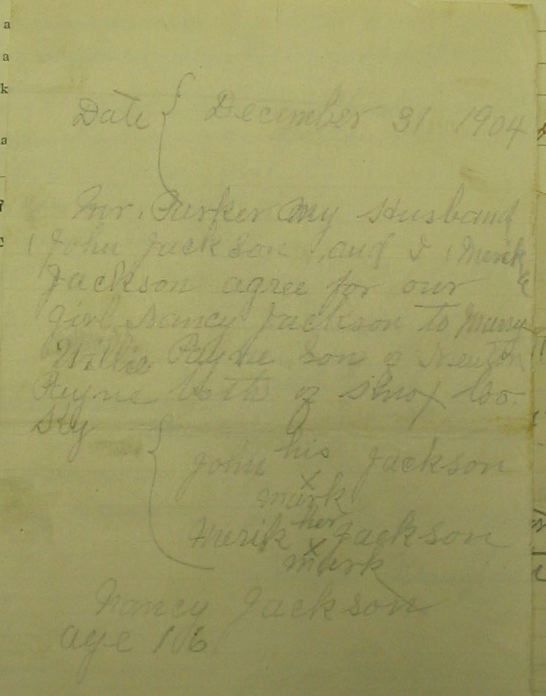 Date { December 31 1904
Mr. Parker My Husband
John Jackson, and I
Jackson agree for our
girl Nancy Jackson to Marry
Willie Payne Son of Newton
Payne both of Knox Co.
Ky
John his Jackson
x
mark
her Jackson
x
mark
Nancy Jackson
age 16